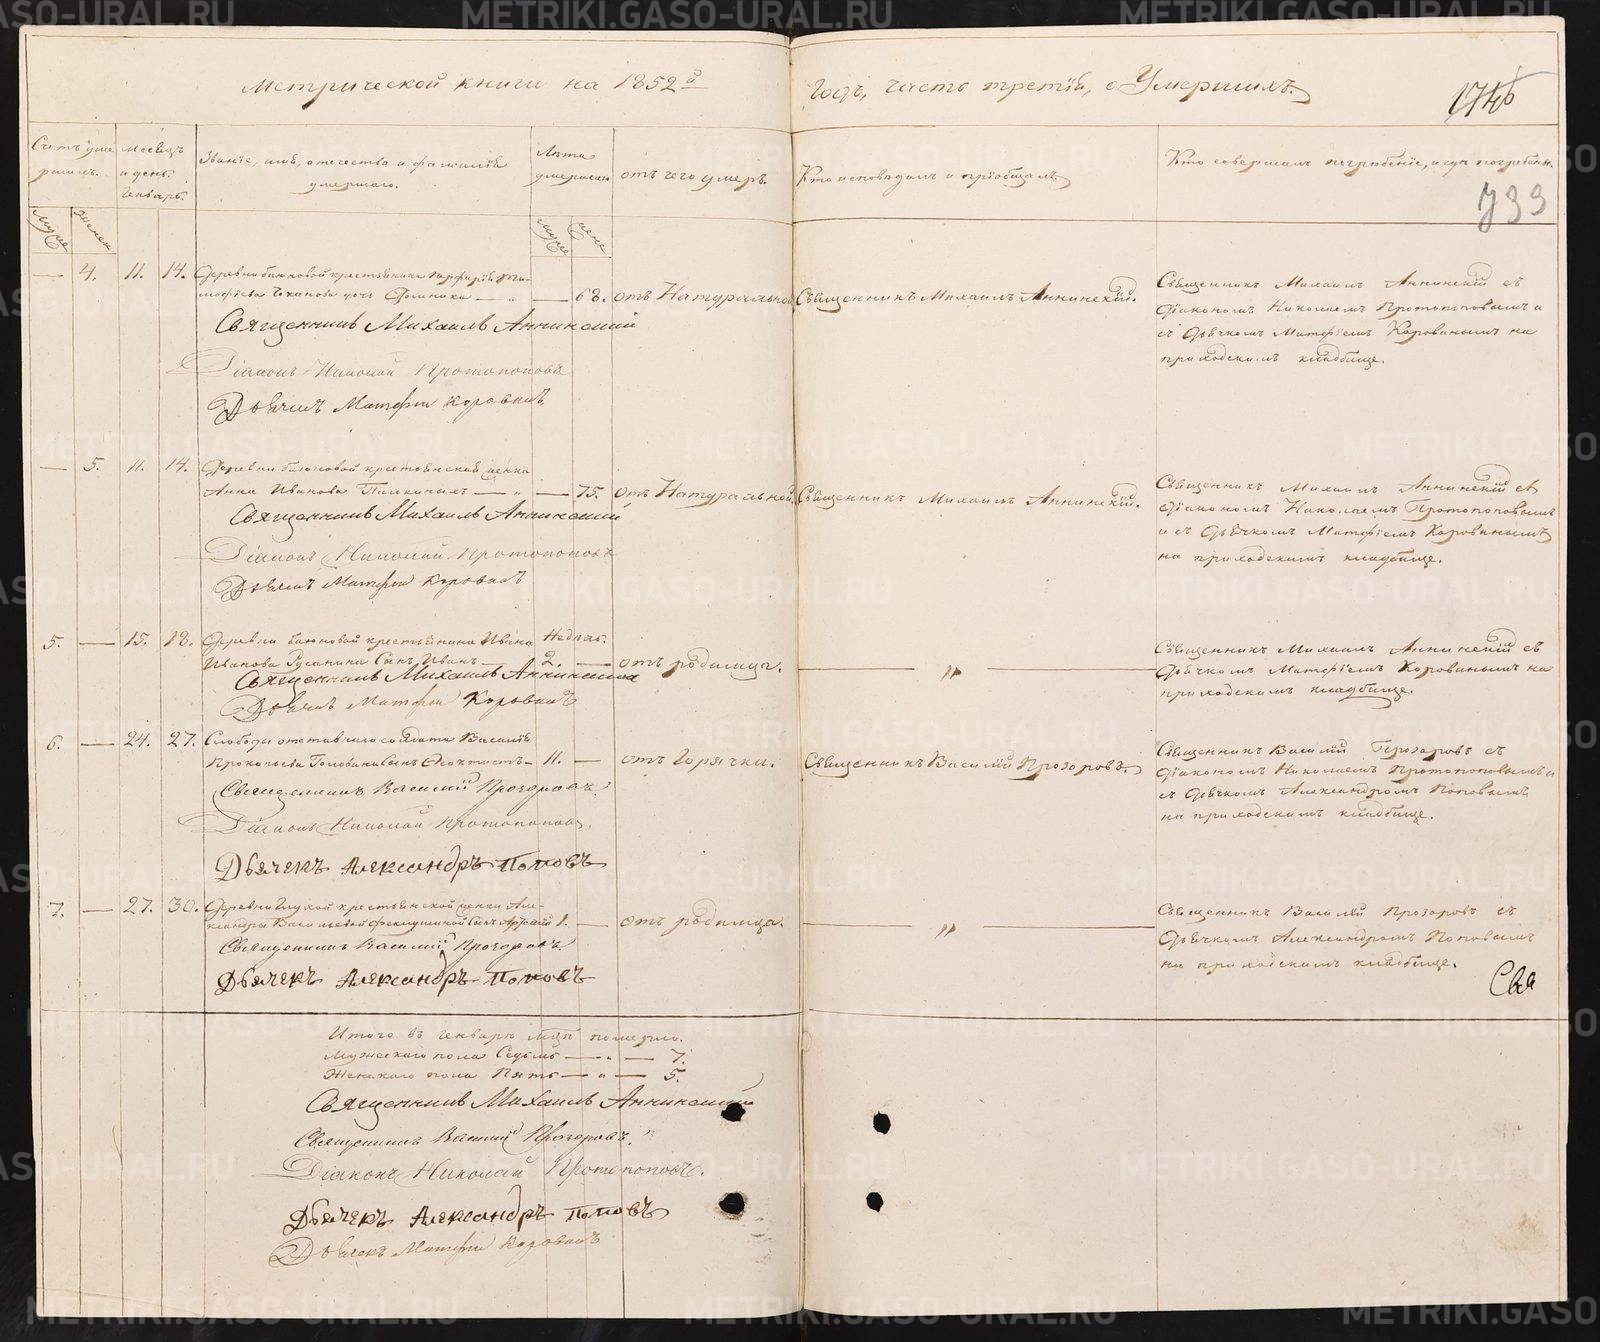 Метрической книги на 1852й
Годъ, часть третія, о Умершихъ.
174б
733
Счетъ умершихъ.
Месяцъ и день.
Генварь.
Званіе, имя, отечество и фамилія
умершаго.
Лѣта
умершаго
отъ чего умеръ.
Кто исповедалъ и пріобщалъ
Кто совершалъ погребеніе, и где погребены.
Муже
Женск
Муже
Жене
— 4. 11. 14. Деревни Баюновой крестьянина Порфирія Ти-
мофѣева дочь Домника — „ — 68. отъ Натуральной Священникъ Михаилъ Аннинскій.
Священникъ Михаилъ Аннинскій съ
діакономъ Николаемъ Протопоповымъ и
съ дьячкомъ Матфіемъ Коровинымъ на
приходскомъ кладбище.
Священникъ Михаилъ Аннинскій
Діаконъ Николай Протопоповъ
Дьячекъ Матфей Коровинъ
— 5. 11. 14. Деревни Баюновой крестьянская женка
Анна Иванова — „ — 75. отъ Натуральной. Священникъ Михаилъ Аннинскій.
Священникъ Михаилъ Аннинскій съ
діакономъ Николаемъ Протопоповымъ
и съ дьячкомъ Матфіемъ Коровинымъ
на приходскомъ кладбище.
Священникъ Михаилъ Аннинскій
Діаконъ Николай Протопоповъ
Дьячекъ Матфей Коровинъ
5. — 15. 18. Деревни Баюновой крестьянина Ивана Недѣль.
Иванова Русанина сынъ Иванъ — 2. — отъ родимца. — „ —
Священникъ Михаилъ Аннинскій съ
дьячкомъ Матфіемъ Коровинымъ на
приходскомъ кладбище.
Священникъ Михаилъ Аннинскій
Дьячекъ Матфей Коровинъ
6. — 24. 27. Слободы отставнаго солдата Василія
Прокопьева Голованова сынъ Феоктистъ — 11. — отъ Горячки. Священникъ Василій Прозоровъ.
Священникъ Василій Прозоровъ съ
діакономъ Николаемъ Протопоповымъ и
съ дьячкомъ Александромъ Поповымъ
на приходскомъ кладбище.
Священникъ Василій Прозоровъ.
Діаконъ Николай Протопоповъ.
Дьячекъ Александръ Поповъ
7. — 27. 30. Деревни Глухой крестьянской женки Але-
ксандры Васильевой сынъ 1. — отъ родимца. — „ —
Священникъ Василій Прозоровъ съ
дьячкомъ Александромъ Поповымъ
на приходскомъ кладбище.
Священникъ Василій Прозоровъ.
Дьячекъ Александръ Поповъ
Свя
Итого въ генварѣ мцѣ померло.
Мужескаго пола Седмь — „ — 7.
Женскаго пола Пять — „ — 5.
Священникъ Михаилъ Аннинскій
Священникъ Василій Прозоровъ.
Діаконъ Николай Протопоповъ.
Дьячекъ Александръ Поповъ
Дьячекъ Матфей Коровинъ
METRIKI.GASO-URAL.RU